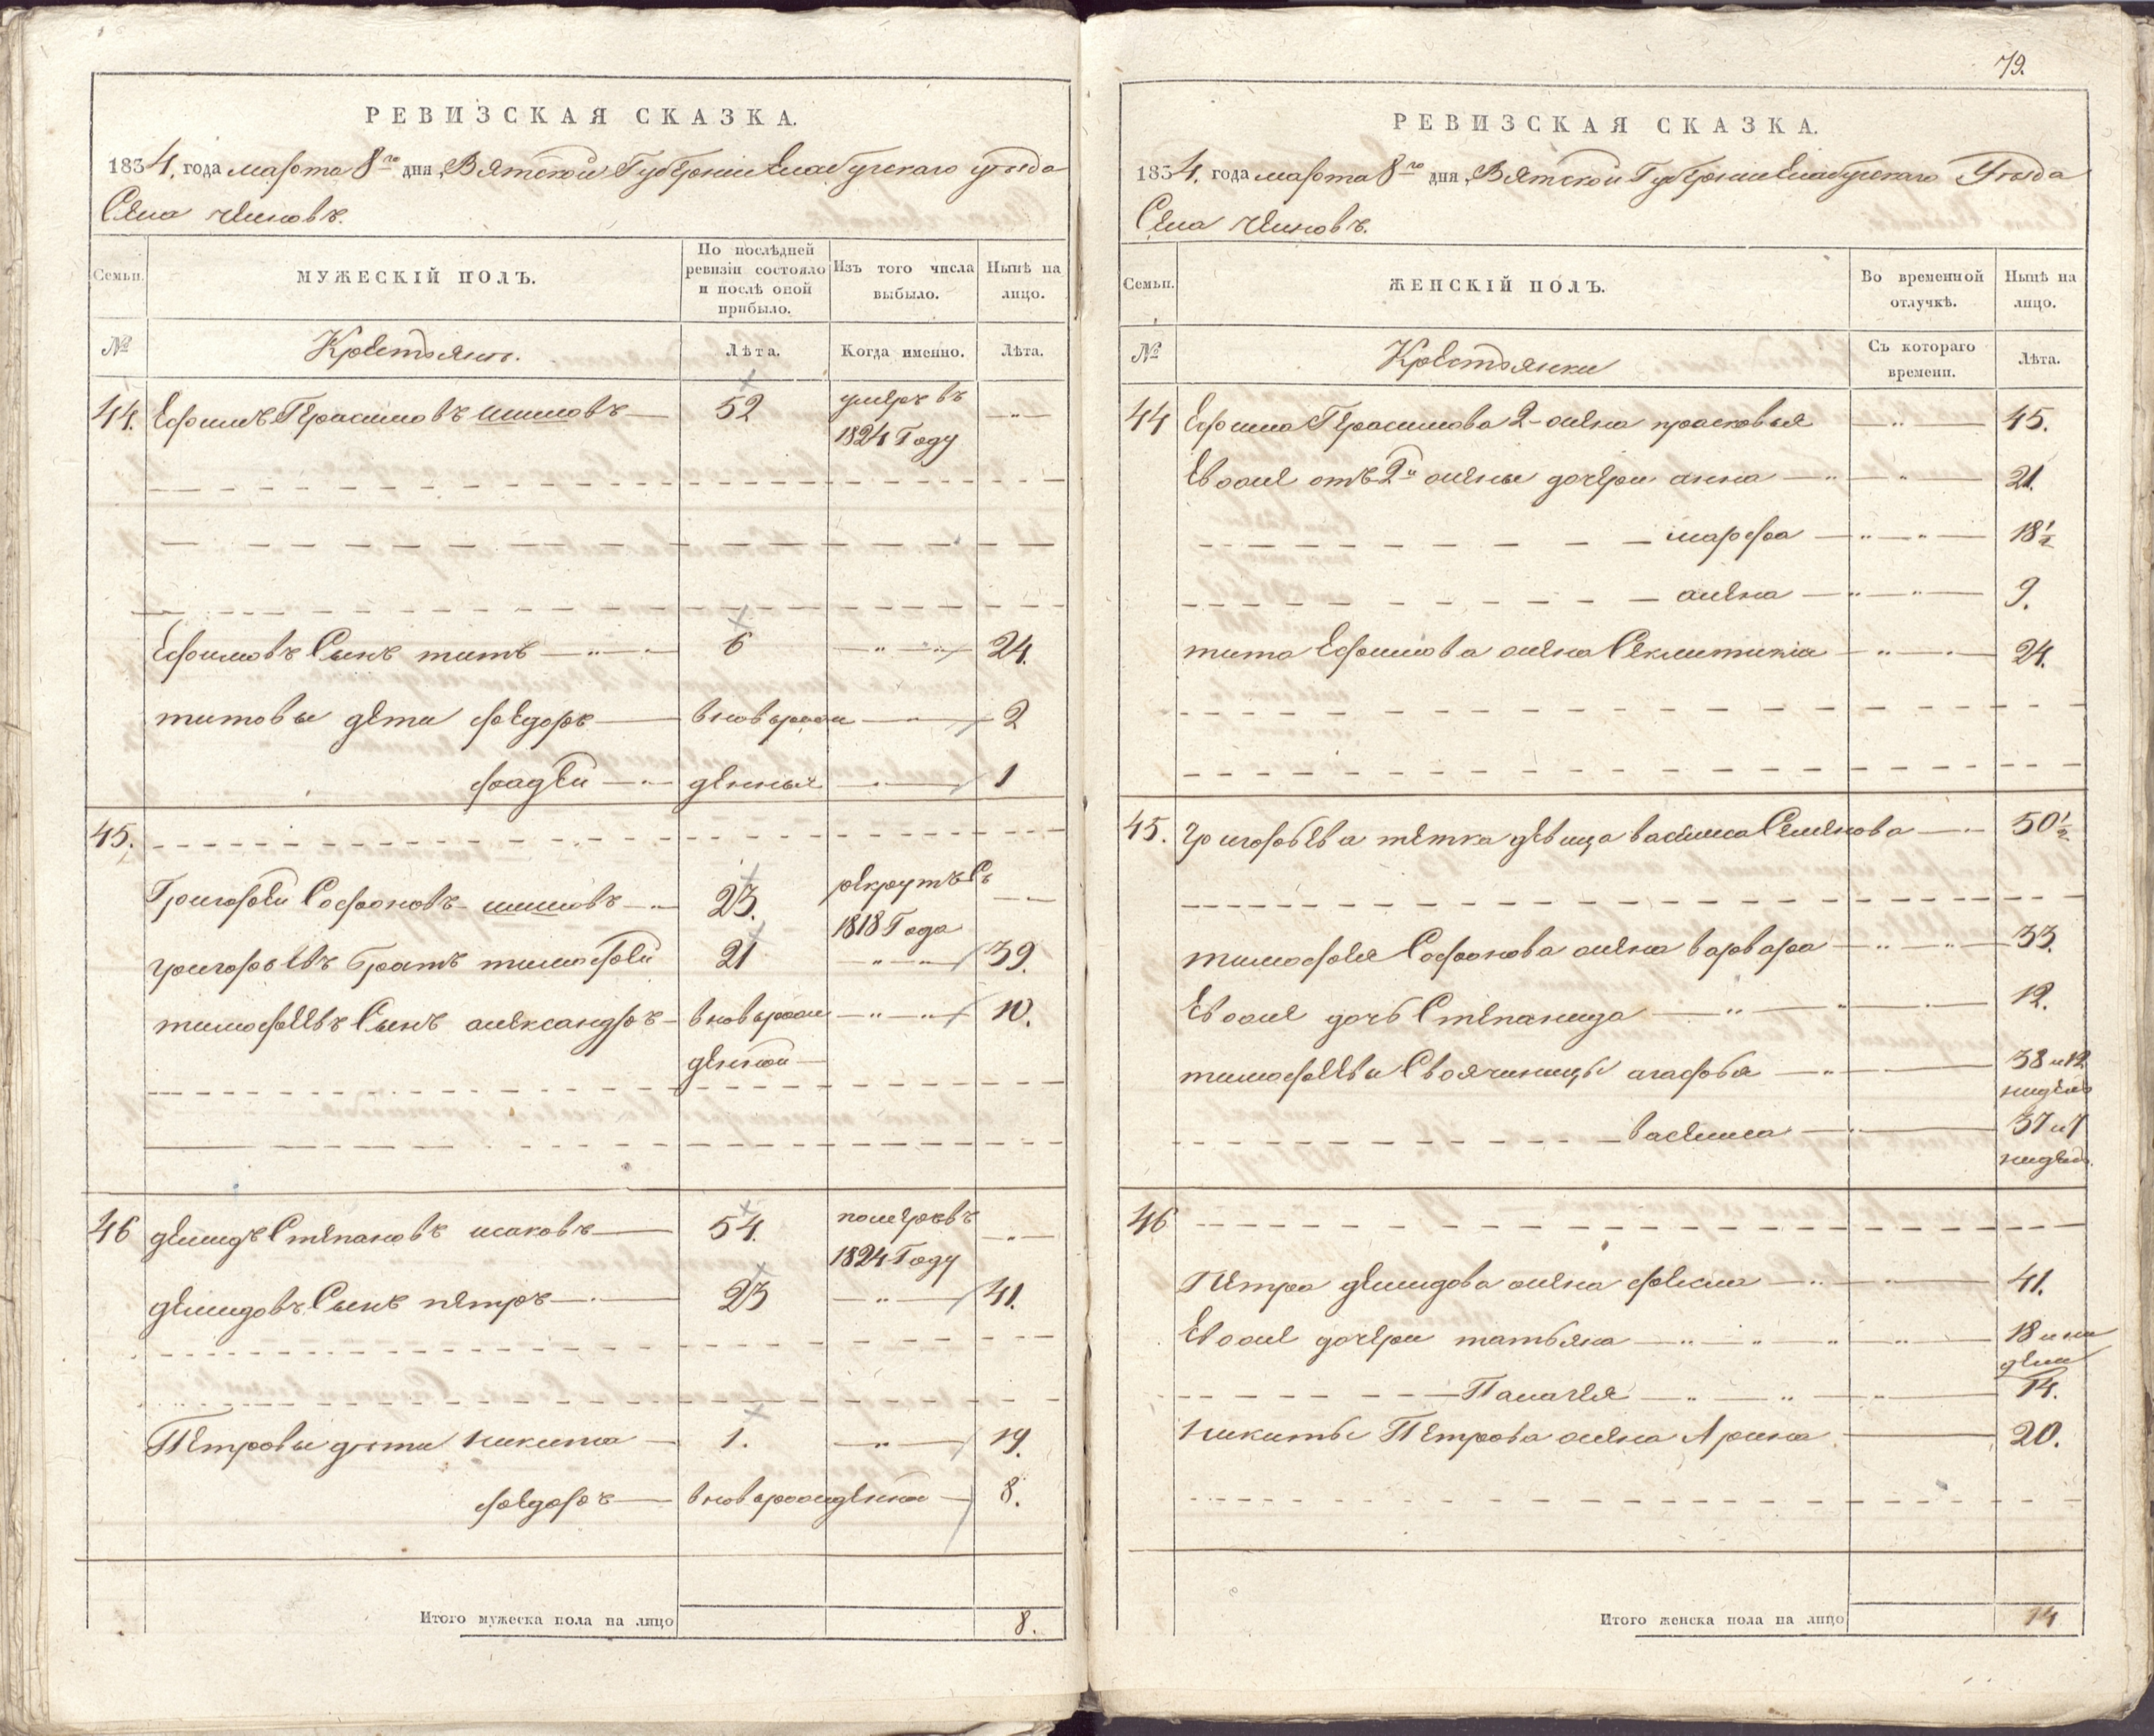 РЕВИЗСКАЯ СКАЗКА.
1834. года марта 8го дня, Вятской Губернии Елабугскаго уѣзда
Села
Семьи.
МУЖЕСКІЙ ПОЛЪ.
По послѣдней ревизіи состояло и послѣ оной прибыло.
Изъ того числа выбыло.
Нынѣ на лицо.
№
Крестьянъ.
Лѣта.
Когда именно.
Лѣта.
44. Ефимъ Герасимовъ 52 умеръ въ
1824 Году
Ефимовъ Сынъ титъ 6 24.
титовы дети федоръ вновьрож 2
фадей денныя 1
45.
Григорей Софроновъ 23. рекрутъ Съ
1818 Года
григорьевъ братъ тимофей 21 39.
тимофеевъ Сынъ александръ вновьрож 10.
денной
46 демидъ Степановъ исаковъ 54. померъ въ
1824 Году
демидовъ Сынъ петръ 23 41.
Петровы дѣти никита 1. 19.
федоръ вноворожденной 8.
Итого мужеска пола на лицо 8.
79.
РЕВИЗСКАЯ СКАЗКА.
1834. года марта 8го дня, Вятской Губернии Елабугскаго Уѣзда
Села
Семьи.
ЖЕНСКІЙ ПОЛЪ.
Во временной отлучкѣ.
Нынѣ на лицо.
№
Крестьянки
Съ котораго времени.
Лѣта.
44 Ефима Герасимова 2-жена прасковья 45.
Ево же отъ 2й жены дочери анна 21.
марфа 18½
алена 9.
тита Ефимова жена 24.
45. григорьева тетка девица василиса Семенова 50½
тимофея Софронова жена варвара 33.
Ево же дочь Степанида 12.
тимофеева Своячиницы агафья 38 и 12
нидель
василиса 37 и 7
нидель.
46
Петра демидова жена фекла 41.
Ево же дочери татьяна 18 и
Палагея 14.
никиты Петрова жена Арина 20.
Итого женска пола на лицо 14